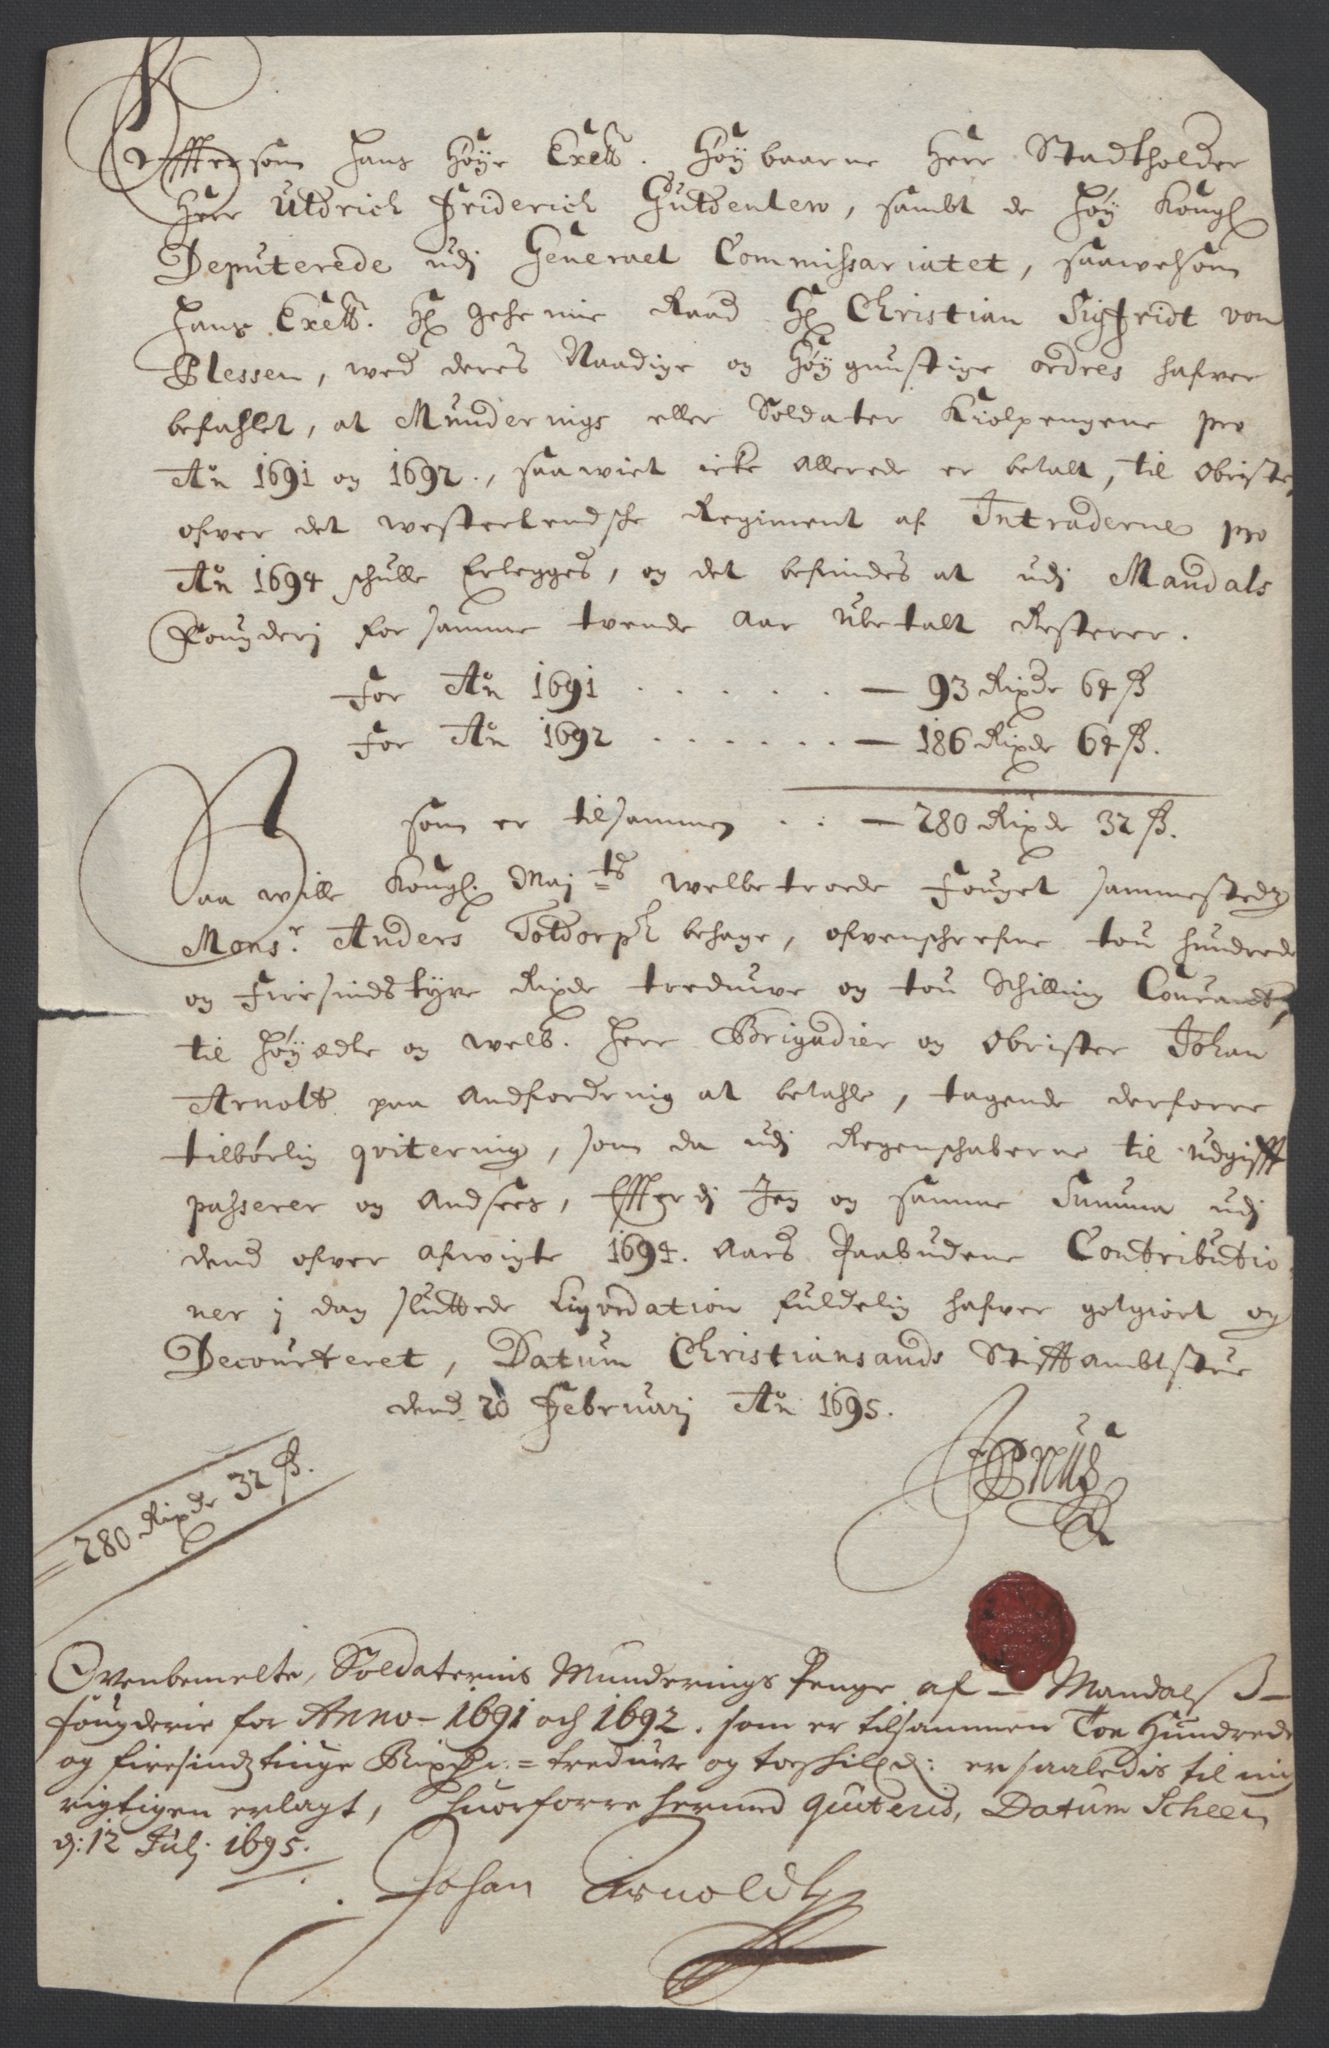 Effter som Hans Høye Excell. Høybaarne Herr Stadtholder
Herr Uldrich Friderich Güldenlew, sambt de Høy Kongl
Deputerede udj General Commissariatet, saavelsom
Hans Excell. Hr Geheime Raad Hr Christian Sigfridt von
Plessen, wed deres Naadige og Høygunstige ordres hafver
befahlet, at Munderings eller Soldater Kiolpengene pro
Ao 1691 og 1692., saawiet icke allerede er betalt, til Obriste
ofver det westerlendsche Regiment af Intraderne pro
Ao 1694 schulle Erlegges, og det befindes at udj Mandals
Fougderj for samme tvende Aar Ubetalt Resterer.
For Ao 1691 . . . . . — 93 Rixdr 64 ß
For Ao 1692 . . . . . . — 186 Rixdr 64 ß.
som er tilsammen . . . — 280 Rixdr 32 ß.
Saa wille Kongl. Maj:ts welbetroede Fouget sammestedz
Monsr. Anders Toldorph behage, ofvenschrefne tou hundrede
og Fiiresindstyve Rixdr treduve og tou Schilling Courandt,
til Høyædle og welb. Herr Brigadier og Obrister Johan
Arnolt paa Andfordring at betahle, tagende derforre
tilbørlig qvitering, som da udj Regenschaberne til udgifft
passerer og Andsees, Effterdj Jeg og samme Summa udj
dend ofver afvigte 1694. Aars Paabudene Contributio
ner j dag sluttede Liqvidation fuldelig hafver gotgiort og
Decourteret, Datum Christiansands Stifftambtstue
dend 20 Februarj Ao 1695.
280 Rixdr 32 ß.
Ovenbemelte, Soldaternis Munderings Penge af — Mandals
fougderie for Anno — 1691 och 1692. som er tilsammen Toe Hundrede
og firesindztiuge Rixdr. = treduve og toe skilld: er saaledis til mig
rigtigen erlagt, huorforre hermed quiteris, Datum Scheen
d: 12 Julj. 1695.
Johan Arnoldt